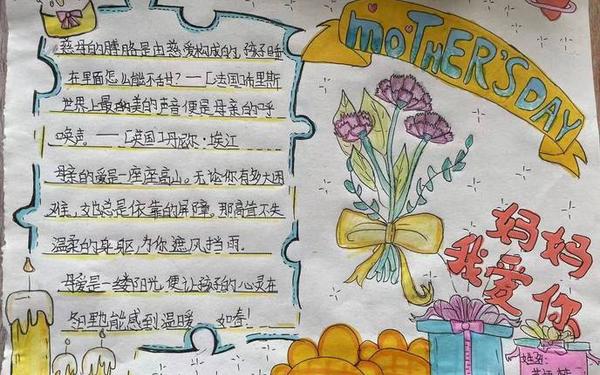 慈母的胳膊是由慈爱构成的,孩子睡
在里面怎么能不甜?——[法国]布里斯
世界上最美的声音便是母亲的呼
唤声。——[英国]丹尼尔·埃江
母亲的爱是一座座高山。无论你有多大困
难,她总是依靠的屏障。那高耸不失
温柔的身躯,为你遮风挡雨。
母爱是一缕阳光,便让孩子的心灵在
冬日里也能感到温暖 如春!
MOTHER'S DAY
妈妈
我爱你
姓名: